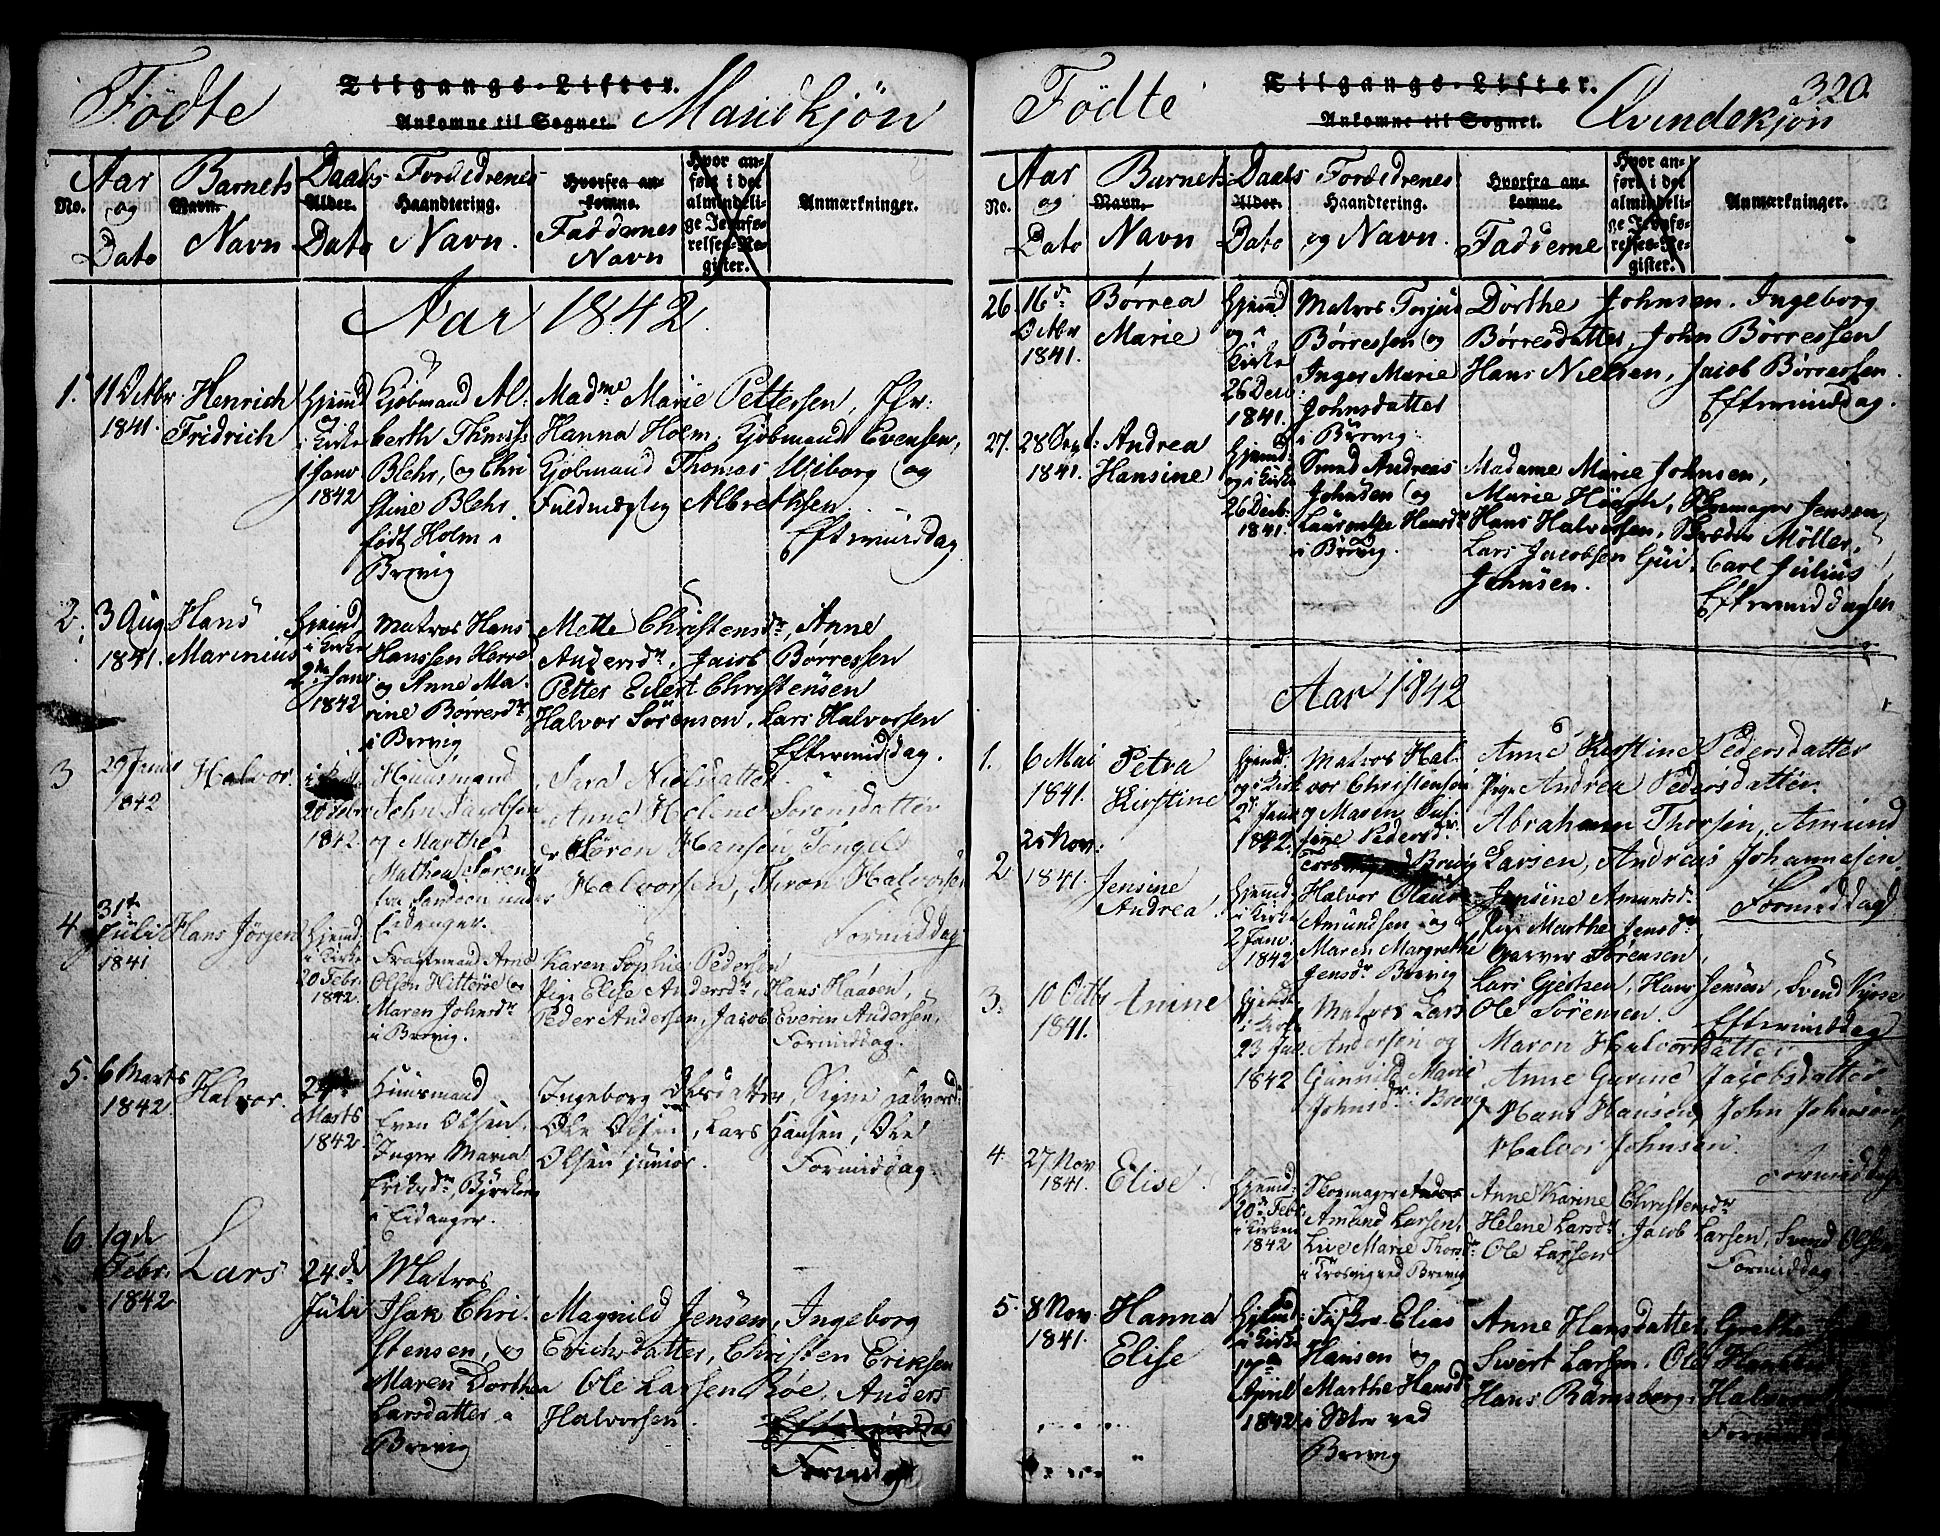 Födte Tilgangs-Lister. Mandkjøn
Ankomne til Sognet.
No. Aar og Dato Barnets Navn Daabs Alder. Dato Forældrenes Haandtering. Navn. Hvorfra ankomne. Faddernes Navn Hvor anført i det almindelige Jevnførelses-Register. Anmærkninger.
Aar 1842.
1. 11 Octbr 1841. Henrich Fridrich
Hjemd i Kirke 1 Janv 1842
Kjöbmand Al-
berth Thmiss:
Blehr, og Chri
stine Blehr,
født Holm i
Brevig
Madme Marie Pettersen, Jfr:
Hanna Holm, Kjöbmand Evensen,
Kjöbmand Thomas Wiborg og
Fuldmægtig Albrethsen
Eftermiddag
2. 3 Aug 1841. Hans Marinius
Hjemd i Kirke 2den Janv 1842
Matros Hans
Hanssen Herre
og Anne Ma-
rine Börresdtr
i Brevig
Mette Christensdr, Anne
Andersdr, Jacob Börressen
Petter Edert Christensen
Halvor Sörenson, Lars Halvorsen
Eftermiddag.
3 29 1842 Halvor.
20 Febr 1842.
Huusmand
John Jacobsen
og Marthe
Mathea Sörens
fra
Eidanger.
Sara Nielsdatter
Anne Helene Sörensdatter
Sören Hansen,
Halvorsen, Thron Halvorsen
Formiddag
4. 31te Juli 1841 Hans Jörgen
Hjemd i Kirke 20 Febr 1842.
Fragtemand Arne
Olsen Hitteröe og
Maren Johnsdr
i Brevig.
Karen Sophie Pedersen
Pige Elise Andersdr, Hans Haasen,
Peder Andersen, Jacob Everin Andersen,
Formiddag.
5. 6 Marts 1842. Halvor.
Marts 1842
Huusmand
Even Olsen.
Inger Maria
Eriksdr,
i Eidanger.
Ingeborg Olesdatter, Signe Halvorsd
Ole Olsen, Lars Hansen, Ole
Olsen junior.
Formiddag.
6. 19de Febr. 1842 Lars
24.de Juli
Matros
Isak Chri-
stensen, og
Maren Dorthea
Larsdatter i
Brevig
Magnild Jensen, Ingeborg
Erichsdatter, Christen Eriksen
Ole Larsen Röe, Anders
Halvorsen.
Eftermiddag
Formidag
Födte Tilgangs-Lister. Qvindekjön 320.
Ankomne til Sognet.
No. Aar og Dato Barnets Navn Daabs Alder. Dato Forældrenes Haandtering. og Navn. Hvorfra ankomne. Fadderne Hvor anført i det almindelige Jevnførelses-Register. Anmærkninger.
26. 16de Octbr 1841. Börrea Marie
Hjemd og i Kirke 26 Decb 1841.
Matros Torjus
Börressen og
Inger Marie
Johnsdatter
i Brevig.
Dorthe Johnsen. Ingeborg
Börresdatter, John Börressen
Hans Nielsen, Jacob Börressen.
Eftermiddag.
27. 28 Sept: 1841. Andrea Hansine
Hjemd: og i Kirke 26 Decb: 1841.
Smed Andreas
Johnsen og
Laurentse Hansdr
i Brevig.
Madame Marie Johnsen,
Marie Höegh, Skomager Jensen
Hans Halvorsen, Skræder Möller,
Lars Jacobsen Gui, Carl Julius
Johnsen.
Eftermiddagen
Aar 1842
1. 6 Mai 1841. Petra Kirstine
Hjemd: og i Kirk 2 Janv 1842.
Matros Hal-
vor Christensen
og Maren Jus-
tine Pedersdr
Brevig
Anne Kirstine Pedersdatter
Pige Andrea Pedersdatter.
Abraham Thorsen, Amund
Larsen, Andreas Johannesen
Formiddag
2 25 Nov: 1841. Jensine Andrea
Hjemd: i Kirke 2 Janv. 1842
Halvor Olaus
Amundsen og
Maren Margrethe
Jensdr Brevig
Jensine Amundsdr
Pige Marthe Jensdr
Garver Sörensen,
Lars Giertsen, Hans Jensen, Svend
Ole Sörensen.
Eftermiddag
3. 10 Octb 1841. Anine
Hjemdt i Kirke 23 Jan. 1842
Matros Lars
Andersen og
Gunnild Marie
Johnsdr i Brevig
Maren Halvorsdatter
Anne Gurine Jacobsdatter
Hans Hansen, John Johnsen,
Halvor Johnsen.
Formiddag
4. 27 Nov 1841. Elise.
Hjemd: 20de Feb: i Kirken 1842
Skomager
Amund Larsen,
Live Marie Thorsdr
i Trosvig ved Brevig
Anne Karine Christensdr
Helene Larsdr. Jacob Larsen, Svend Olsen
Ole Larsen
Formiddag.
5. 8 Nov 1841. Hanna Elise
Hjemd i Kirke 17de April 1842.
Fisker Elias
Hansen og
Marthe Hansdr
ved
Brevig
Anne Hansdatter, Grethe
Siwert Larsen. Ole Hansen
Hans Ramsberg, Halvor
Formiddag